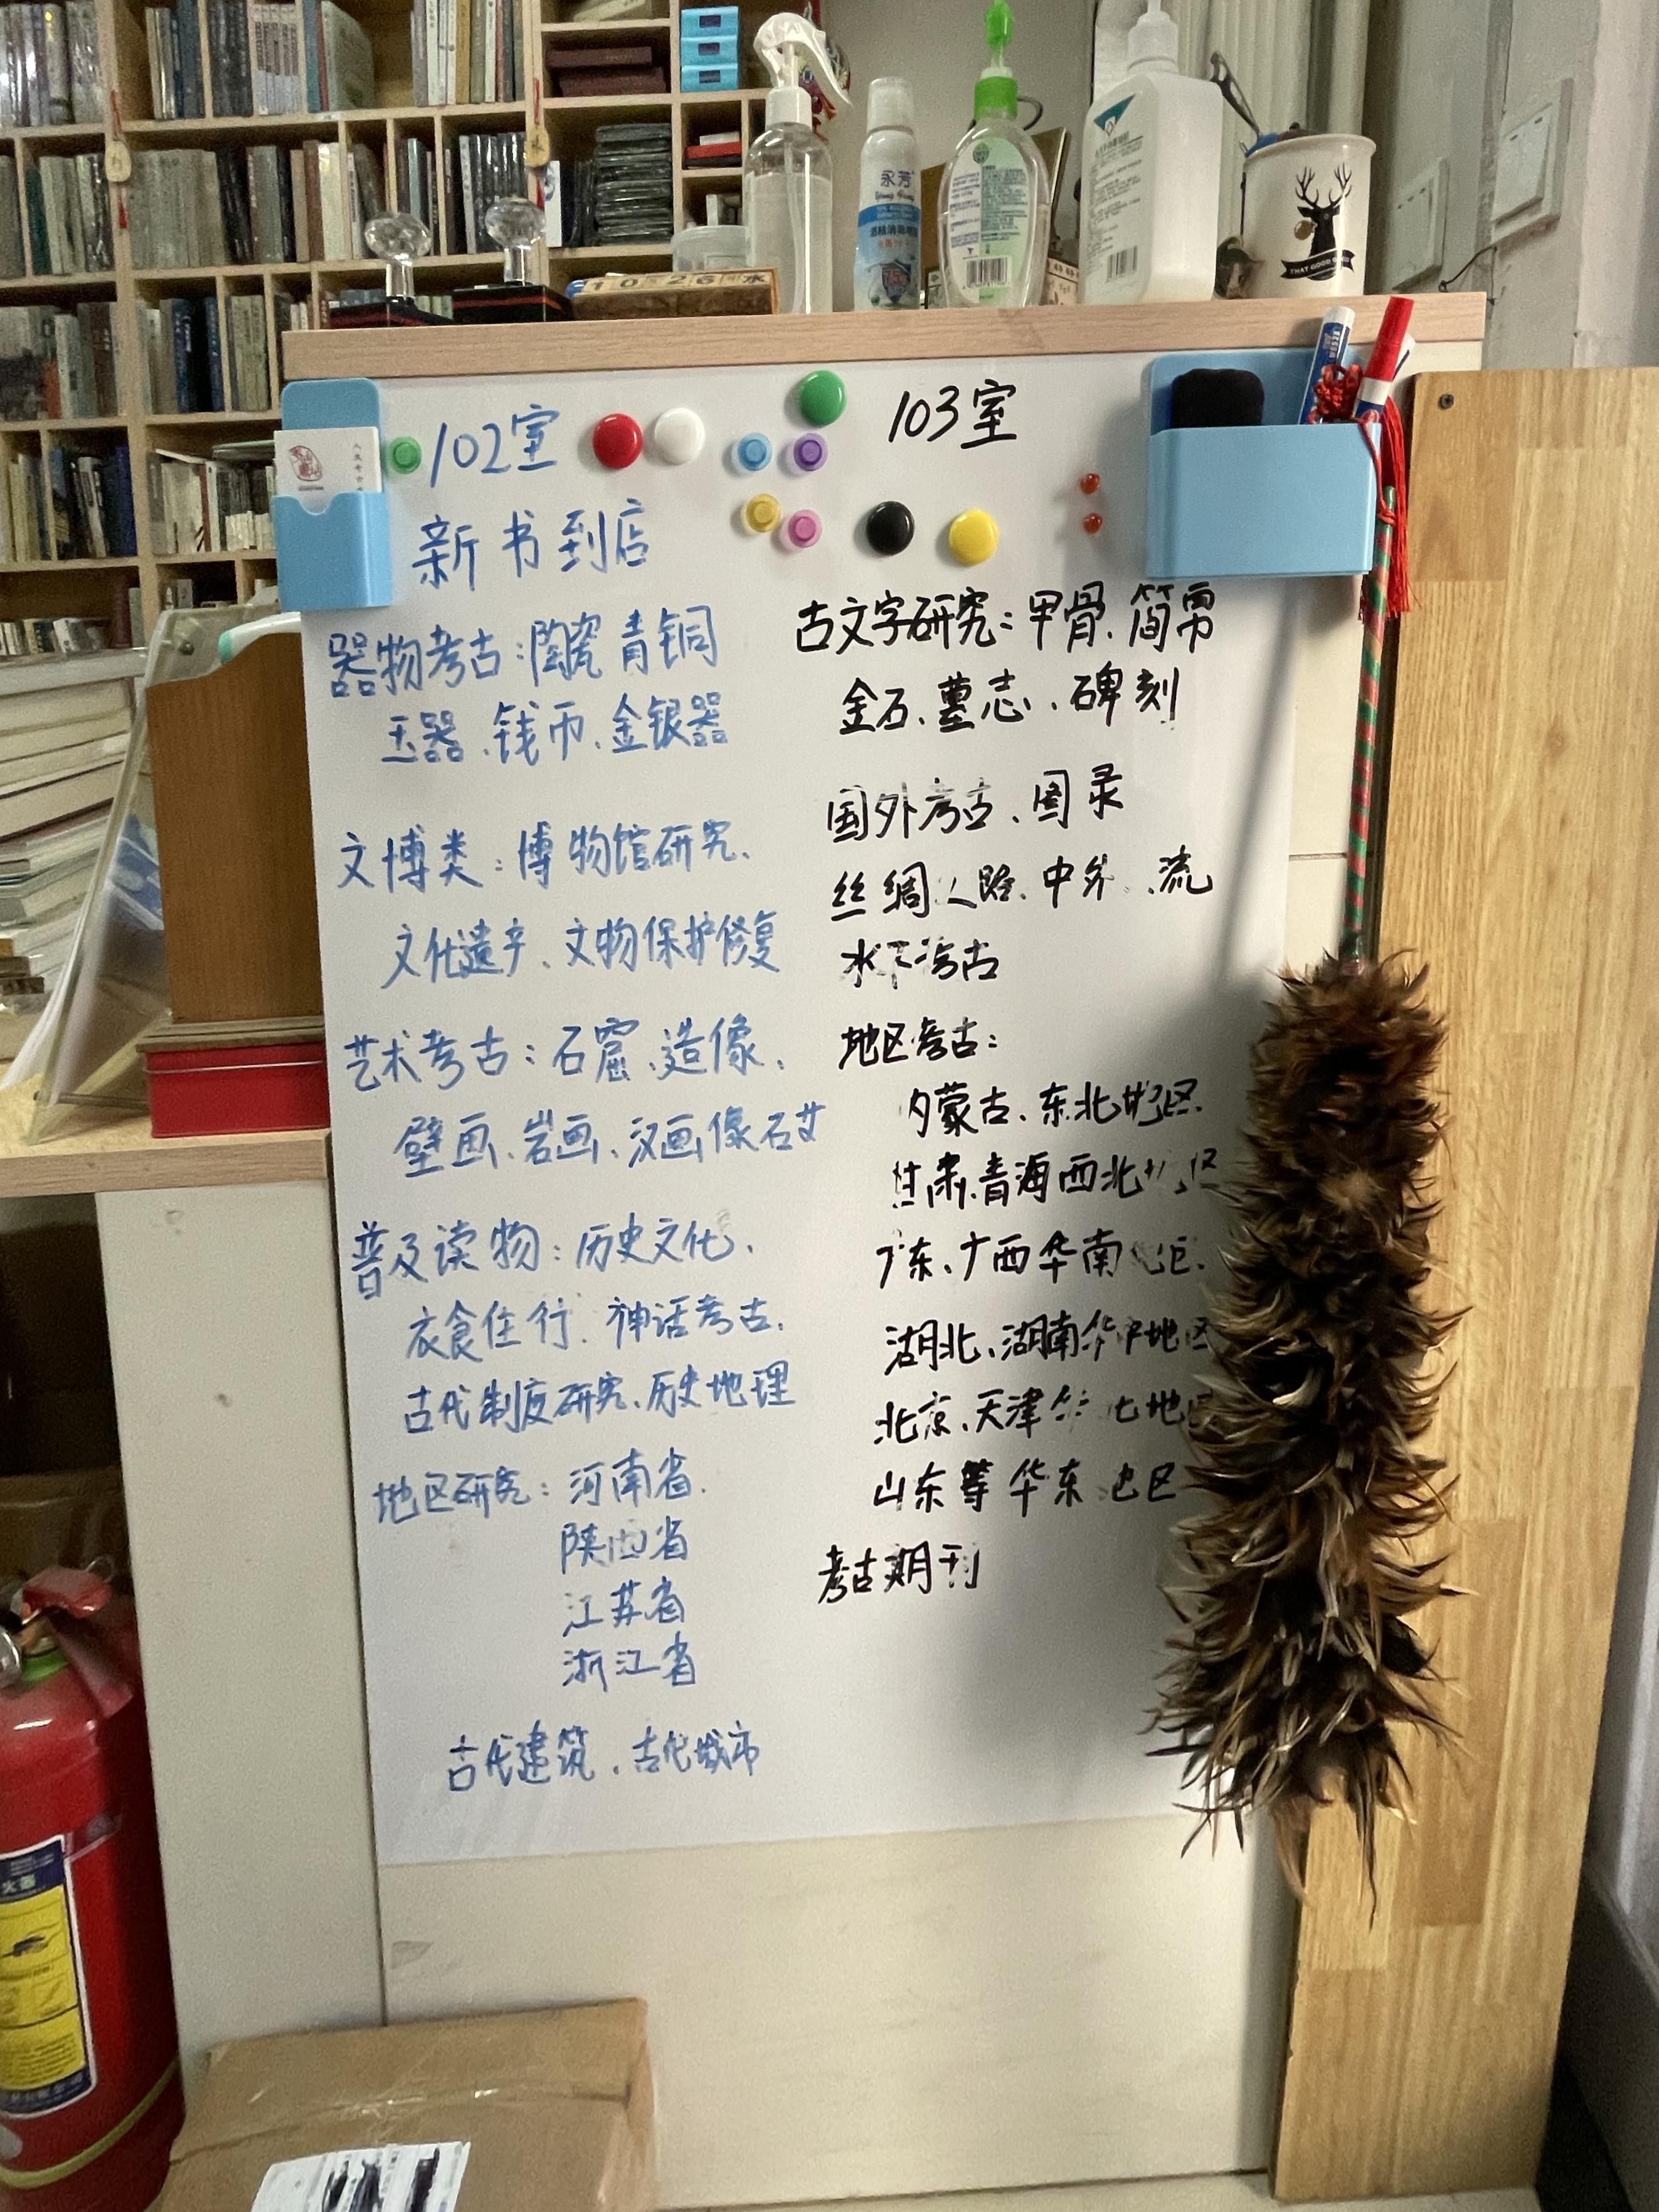 102室
新书到店
器物考古：陶瓷 青铜
玉器、钱币、金银器
文博类：博物馆研究、
文化遗产、文物保护修复
艺术考古：石窟、造像、
壁画、岩画、汉画像石艺
普及读物：历史文化、
衣食住行、神话考古、
古代制度研究、历史地理
地区研究：河南省、
陕西省
江苏省
浙江省
古代建筑、古代城市
103室
古文字研究：甲骨、简帛
金石、墓志、碑刻
国外考古、图录
丝绸之路、中外 流
水下考古
地区考古：
内蒙古、东北地区、
甘肃、青海西北地区
广东、广西华南地区、
湖北、湖南华中地区
北京、天津华北地区
山东等华东地区
考古期刊
永芳
10 26 水
THAT GOOD
火器